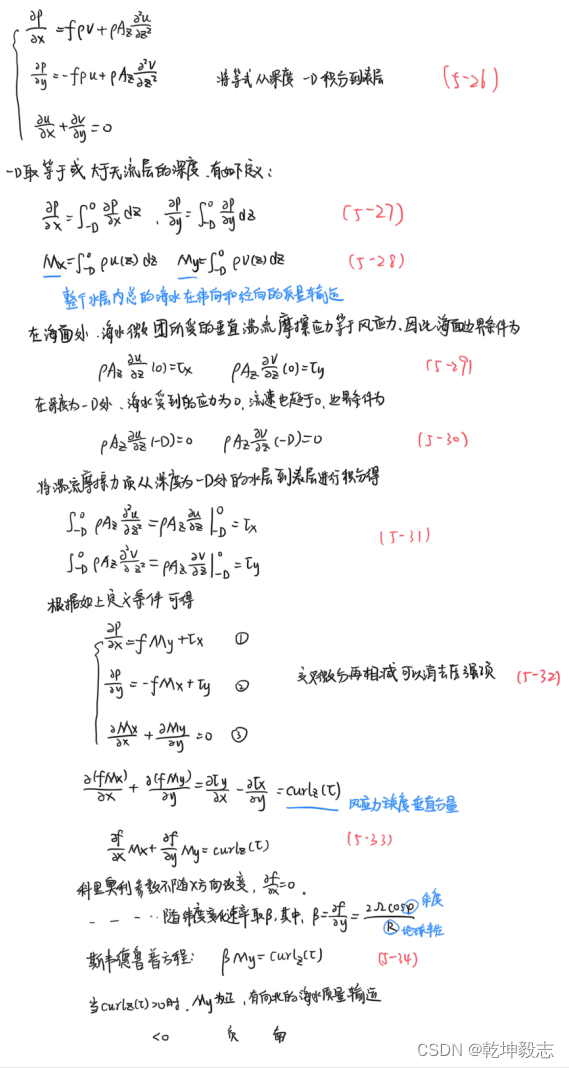 ∂p/∂x = fρv + ρAz ∂²u/∂z²
∂p/∂y = -fρu + ρAz ∂²v/∂z² 将等式从深度 -D 积分到表层 (5-26)
∂u/∂x + ∂v/∂y = 0
-D取等于或大于无流层的深度,有如下定义:
∂p/∂x = ∫₋D⁰ ∂p/∂x dz , ∂p/∂y = ∫₋D⁰ ∂p/∂y dz (5-27)
Mx = ∫₋D⁰ ρu(z) dz My = ∫₋D⁰ ρv(z) dz (5-28)
整个水层内总的海水在纬向和经向的质量输运
在海面处,海水微团所受的垂直湍流摩擦应力等于风应力,因此海面边界条件为
ρAz ∂u/∂z (0) = τx ρAz ∂v/∂z (0) = τy (5-29)
在深度为-D处,海水受到的应力为0,流速也趋于0,边界条件为
ρAz ∂u/∂z (-D) = 0 ρAz ∂v/∂z (-D) = 0 (5-30)
将湍流摩擦力项从深度为-D处的水层到表层进行积分得
∫₋D⁰ ρAz ∂²u/∂z² = ρAz ∂u/∂z |₋D⁰ = τx
(5-31)
∫₋D⁰ ρAz ∂²v/∂z² = ρAz ∂v/∂z |₋D⁰ = τy
根据如上定义条件可得
∂p/∂x = fMy + τx ①
∂p/∂y = -fMx + τy ② 交叉微分再相减可以消去压强项 (5-32)
∂Mx/∂x + ∂My/∂y = 0 ③
∂(fMx)/∂x + ∂(fMy)/∂y = ∂τy/∂x - ∂τx/∂y = curlz(τ) 风应力旋度垂直分量
∂f/∂x Mx + ∂f/∂y My = curlz(τ) (5-33)
科里奥利参数不随X方向改变,∂f/∂x = 0.
- - - ··随纬度变化速率取β,其中,β = ∂f/∂y = 2Ωcosφ/R 纬度 地球半径
斯韦德鲁普方程: βMy = curlz(τ) (5-34)
当curlz(τ)>0时,My为正,有向北的海水质量输运
<0 负 南
CSDN @乾坤毅志